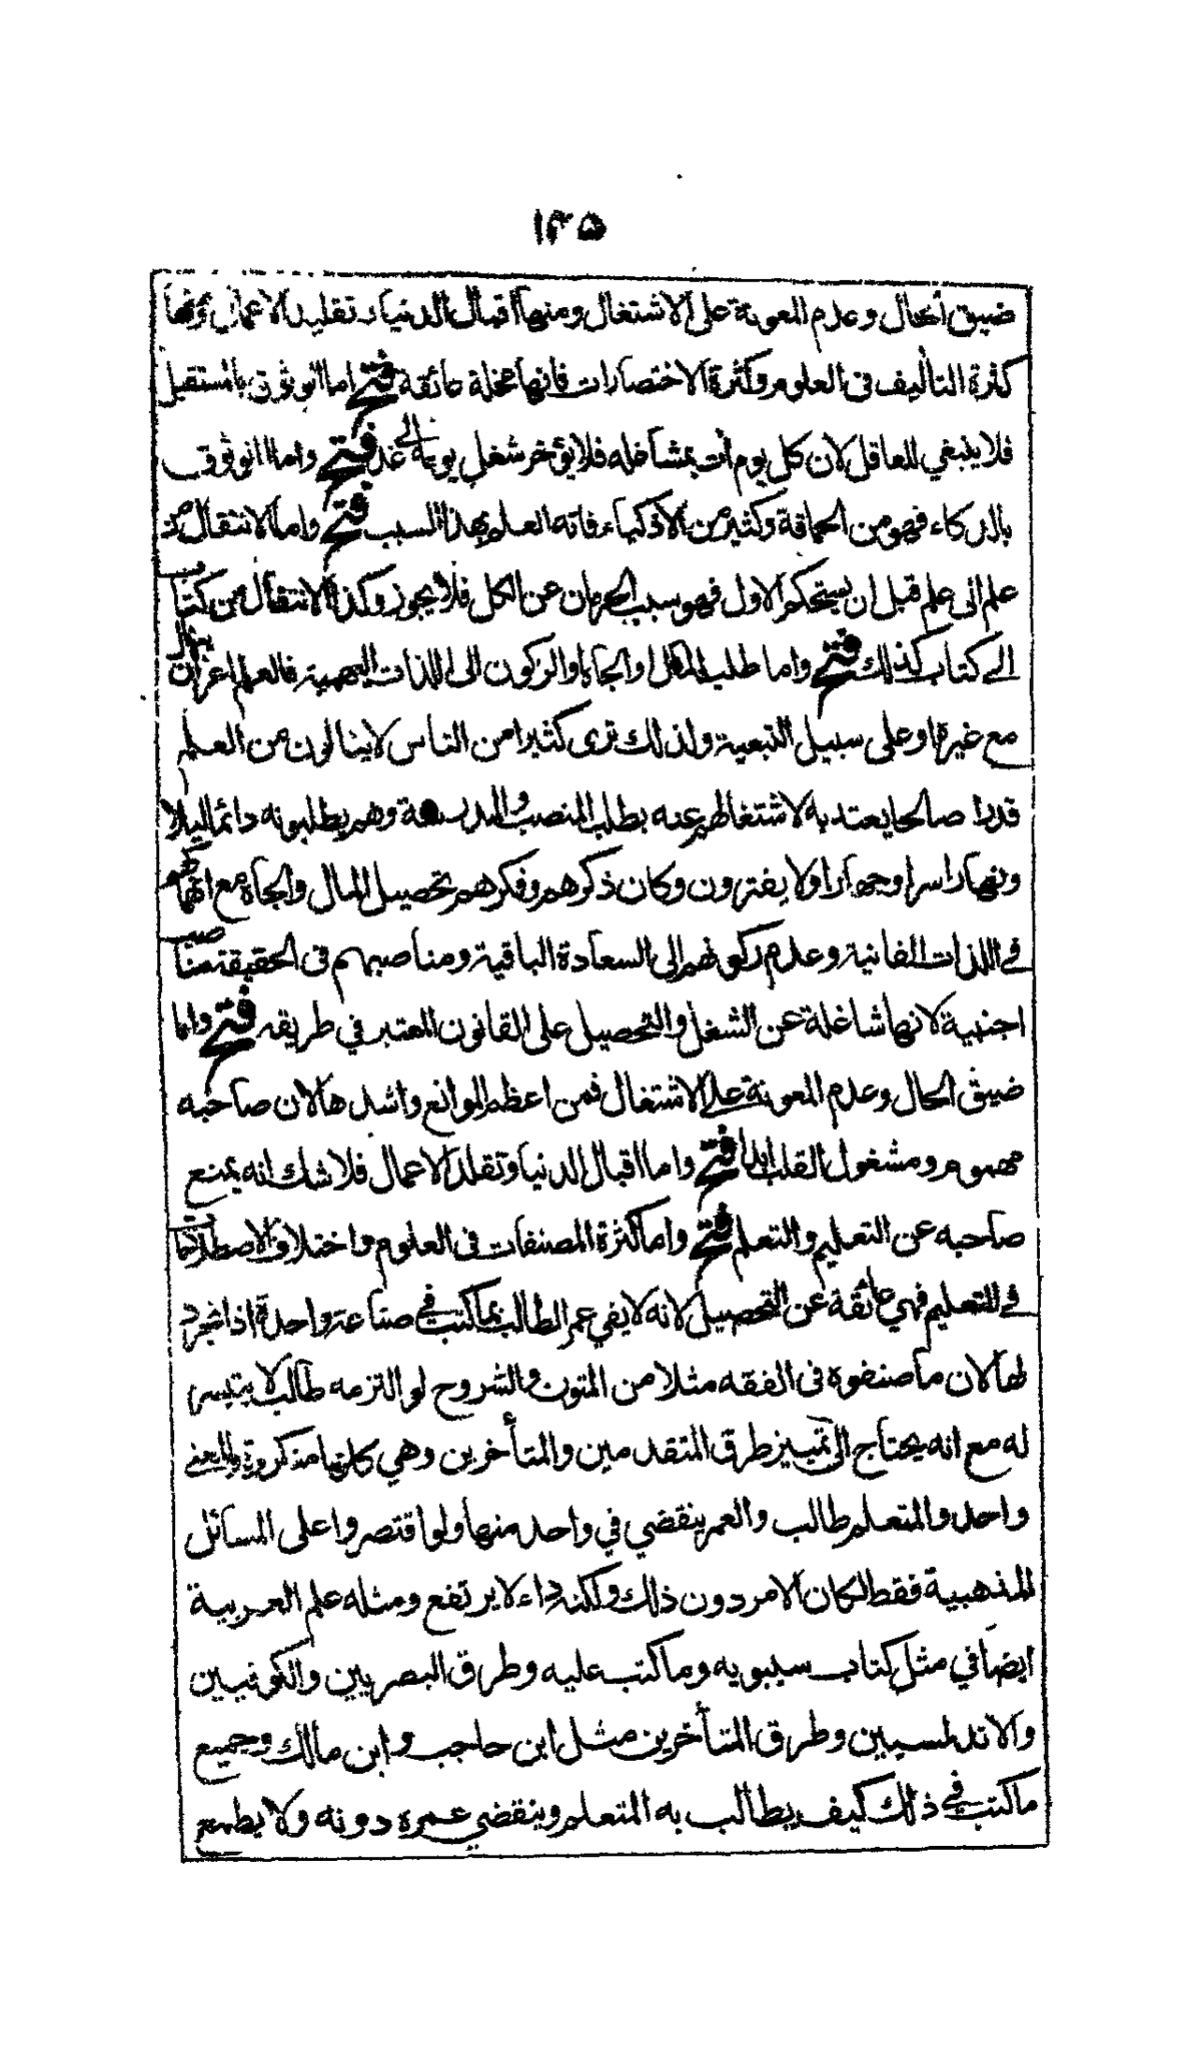 ١٣٥
ضيق الحال وعدم المعونة على الاشتغال ومنها اقبال الدنيا وتقليد الاعمال ومنها
كثرة التأليف فى العلوم وكثرة الاختصارات فانها مخلة عائقة فتح اما الوثوق بالمستقبل
فلا ينبغي للعاقل لان كل يوم آت بمشاغله فلا يؤخر شغل يومه الى غد فتح واما الوثوق
بالذكاء فهو من الحماقة وكثير من الاذكياء فاته العلم بهذا السبب فتح واما الانتقال من
علم الى علم قبل ان يستحكم الاول فهو سبب الحرمان عن الكل فلا يجوز وكذا الانتقال من كتاب
الى كتاب كذلك فتح واما طلب المال او الجاه او الركون الى اللذات البهيمية فالعلم اعز ان ينال
مع غيره او على سبيل التبعية ولذلك ترى كثيرا من الناس لا ينالون من العلم
قدرا صالحا يعتد به لاشتغالهم عنه بطلب المنصب والمدرسة وهم يطلبونه دائما ليلا
ونهارا سرا وجهارا ولا يفترون وكان ذكرهم وفكرهم تحصيل المال والجاه مع انهماكهم
في اللذات الفانية وعدم ركونهم الى السعادة الباقية ومناصبهم فى الحقيقة مناصب
اجنبية لانها شاغلة عن الشغل والتحصيل على القانون المعتبر في طريقه فتح واما
ضيق الحال وعدم المعونة على الاشتغال فمن اعظم الموانع واشدها لان صاحبه
مهموم ومشغول القلب ابدا فتح واما اقبال الدنيا وتقلد الاعمال فلا شك انه يمنع
صاحبه عن التعليم والتعلم فتح واما كثرة المصنفات فى العلوم واختلاف الاصطلاحات
في التعليم فهي عائقة عن التحصيل لانه لا يفي عمر الطالب بما كتب في صناعة واحدة اذا تجرد
لها لان ما صنفوه فى الفقه مثلا من المتون والشروح لو التزمه طالب لا يتيسر
له مع انه يحتاج الى تمييز طرق المتقدمين والمتأخرين وهي كلها متكررة والمعنى
واحد والمتعلم طالب والعمر ينقضي في واحد منها ولو اقتصروا على المسائل
المذهبية فقط لكان الامر دون ذلك ولكنه داء لا يرتفع ومثله علم العربية
ايضا في مثل كتاب سيبويه وما كتب عليه وطرق البصريين والكوفيين
والاندلسيين وطرق المتأخرين مثل ابن حاجب وابن مالك وجميع
ما كتب في ذلك كيف يطالب به المتعلم وينقضي عمره دونه ولا يطمع